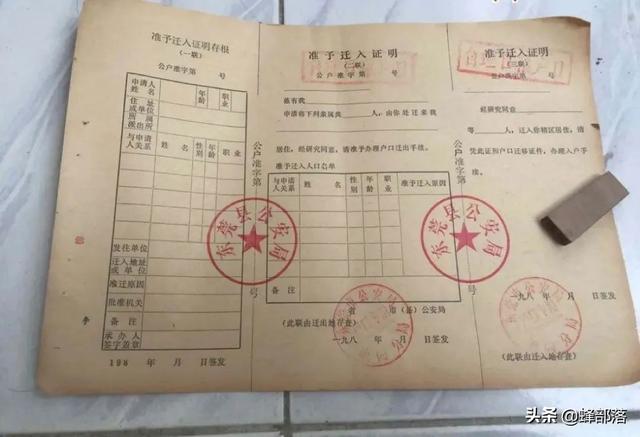 准予迁入证明存根
(一联)
公户准字第 号
申请人姓名 年龄 职业
住址或单位
所属派出所
与申请人关系 姓名 性别 年龄 职业
发往单位
迁入地址或单位
准迁原因
批准机关
备注
承办人签字盖章
198 年 月 日签发
公户准字第 号
东莞县公安局
准予迁入证明
(二联)
公户准字第 号
兹有我
申请将下列亲属我 人,由你处迁来我
居住,经研究同意,请准予办理户口迁出手续。
准予迁入人口名单
与申请人关系 姓名 性别 年龄 职业 准予迁入原因
备注
省 市(县)公安局
(此联由迁出地存查)
一九八 年 月 日签发
公户准字第 号
东莞县公安局
准予迁入证明
(三联)
公户准字第 号
经研究同意
等 人,迁入你辖区居住,请
凭此证和户口迁移证件,办理入户手
续。
一九八 年 月 日签发
(此联由迁入地存查)
头条 @蜂部落